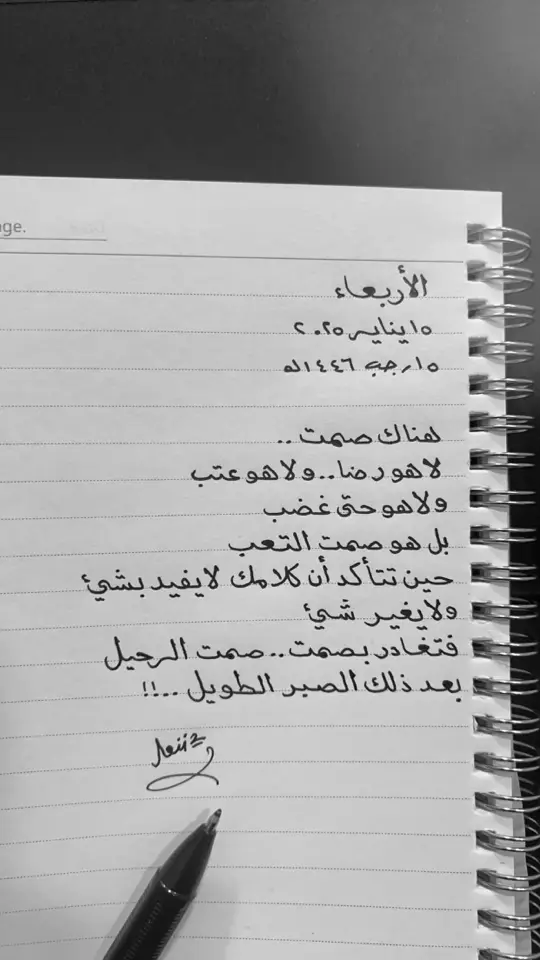 age.
الأربعاء
١٥ يناير ٢٠٢٥
١٥ رجب ١٤٤٦ه
هناك صمت..
لا هو رضا.. ولا هو عتب
ولا هو حتى غضب
بل هو صمت التعب
حين تتأكد أن كلامك لا يفيد بشيئ
ولا يغير شيئ
فتغادر بصمت.. صمت الرحيل
بعد ذلك الصبر الطويل ..!!